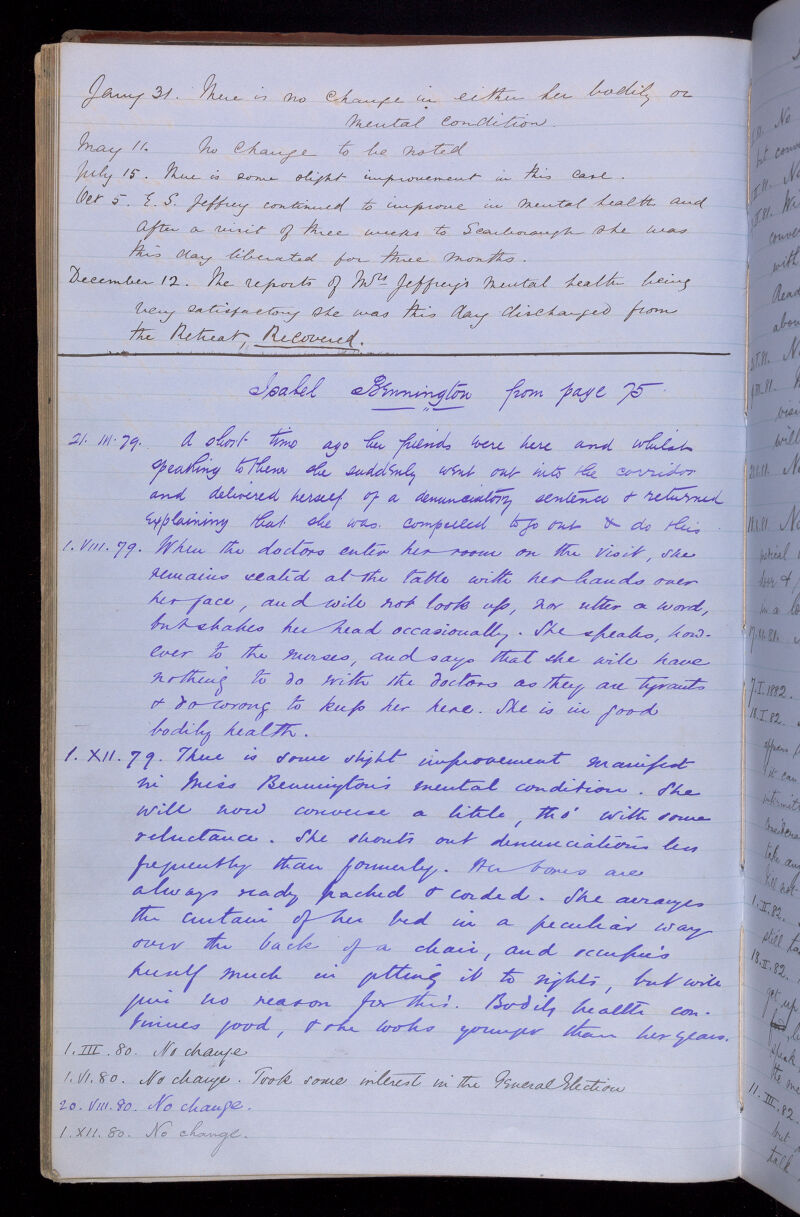 Jany 31. There is no change in either her bodily or
mental condition.
May 11. No change to be noted
July 15. There is some slight improvement in this case.
Oct 5. E. S. Jeffrey continued to improve in mental health and
after a visit of three weeks to Scarborough she was
this day liberated for three months.
December 12. The reports of Mrs Jeffrey's mental health being
very satisfactory she was this day discharged from
the Retreat, Recovered.
Isabel Bennington from page 75.
21. III. 79. A short time ago her friends were here and whilst
speaking to them she suddenly went out into the corridor
and delivered herself of a denunciatory sentence & returned
explaining that she was compelled to go out & do this.
1. VIII. 79. When the doctors enter her room on the visit, she
remains seated at the table with her hands over
her face, and will not look up, nor utter a word,
but shakes her head occasionally. She speaks, how-
ever to the nurses, and says that she will have
nothing to do with the doctors as they are tyrants
& do wrong to keep her here. She is in good
bodily health.
1. XII. 79. There is some slight improvement manifest
in Miss Bennington's mental condition. She
will now converse a little, tho' with some
reluctance. She shouts out denunciations less
frequently than formerly. Her boxes are
always ready packed & corded. She arranges
the curtain of her bed in a peculiar way
over the back of a chair, and occupies
herself much in putting it to rights, but will
give no reason for this. Bodily health con-
tinues good, & she looks younger than her years.
1. III. 80. No change
1. VI. 80. No change. Took some interest in the General Election
20. VIII. 80. No change.
1. XII. 80. No change.